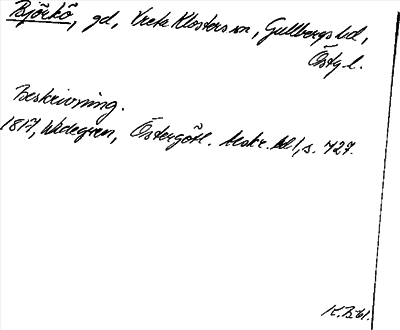 Björkö, gd, Vreta Klosters sn, Gullbergs hd,
Östg l.
Beskrivning.
1817, Widegren, Östergötl. Beskr. bd 1, s. 427.
K. Bibl.